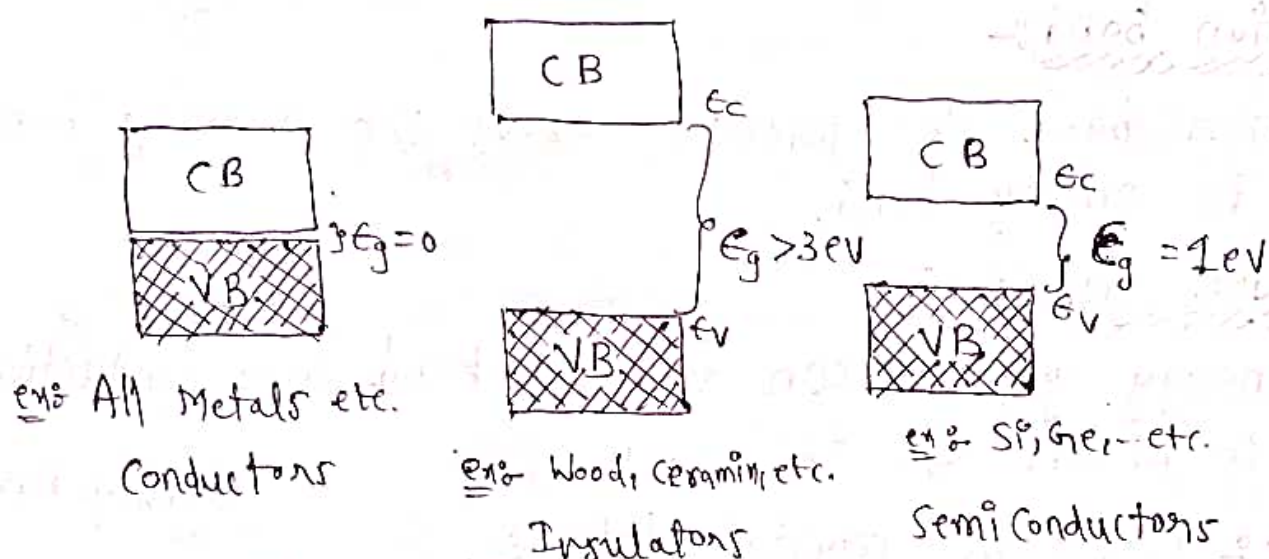 CB
}Eg=0
VB
ex: All Metals etc.
Conductors
CB
Ec
Eg >3eV
Ev
VB
ex: Wood, Ceramin, etc.
Insulators
CB
Ec
Eg = 1eV
Ev
VB
ex: Si, Ge, -- etc.
Semi Conductors